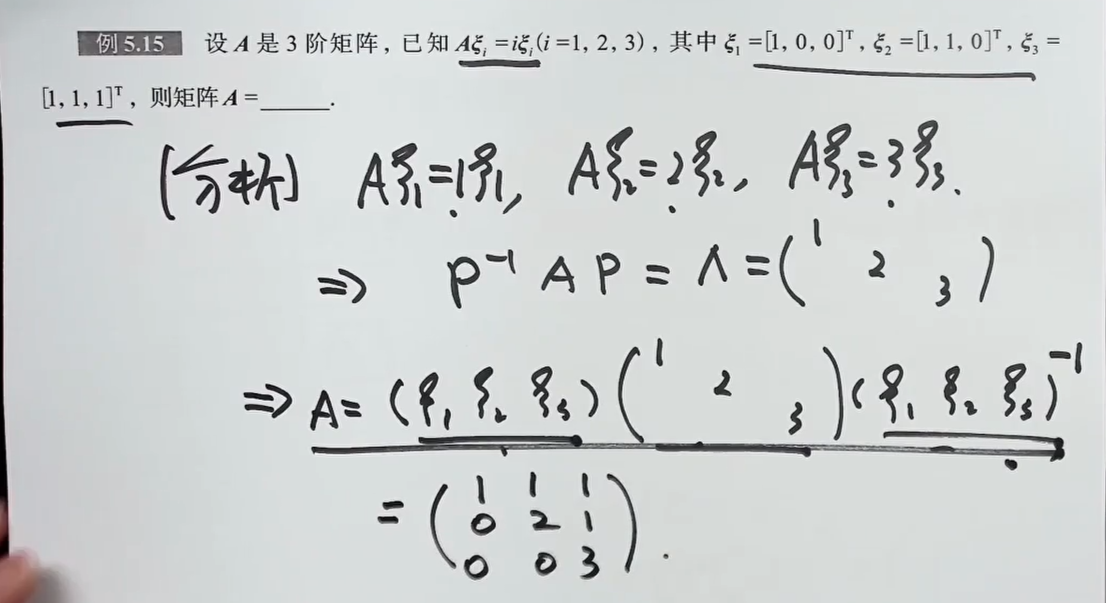 例 5.15 设 A 是 3 阶矩阵，已知 Aξᵢ =iξᵢ(i =1, 2, 3)，其中 ξ₁ =[1, 0, 0]ᵀ, ξ₂ =[1, 1, 0]ᵀ, ξ₃ =
[1, 1, 1]ᵀ，则矩阵 A =______.
[分析] Aξ₁=1ξ₁, Aξ₂=2ξ₂, Aξ₃=3ξ₃.
⇒ P⁻¹ A P = Λ = (1 2 3)
⇒ A= (ξ₁ ξ₂ ξ₃) (1 2 3) (ξ₁ ξ₂ ξ₃)⁻¹
= (1 1 1
0 2 1
0 0 3).